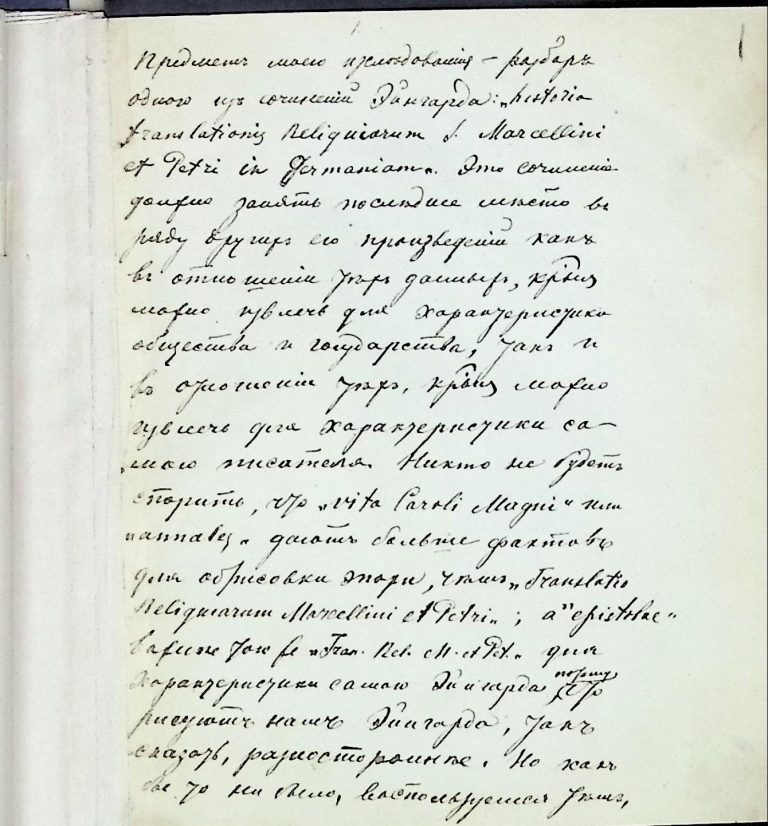 1
Предметъ моего изслѣдованія – разборъ
одного изъ сочиненій Эйнгарда: „historia
translationis Reliquiarum S. Marcellini
et Petri in Germaniam“. Это сочиненіе
должно занять послѣднее мѣсто въ
ряду другихъ его произведеній какъ
въ отношеніи тѣхъ данныхъ, крыя
можно извлечь для характеристики
общества и государства, такъ и
въ отношеніи тѣхъ, крыя можно
извлечь для характеристики са-
мого писателя. Никто не будетъ
спорить, что „vita Caroli Magni“ или
„annales“ даютъ больше фактовъ
для обрисовки эпохи, чѣмъ „Translatio
Reliquiarum Marcellini et Petri“; а "epistolae"
важнѣе той же „Tran. Rel. M. et Pet.“ для
характеристики самого Эйнгарда, потому что
рисуютъ намъ Эйнгарда, такъ
сказать, разностороннѣе. Но какъ
бы то ни было, воспользуемся тѣмъ,